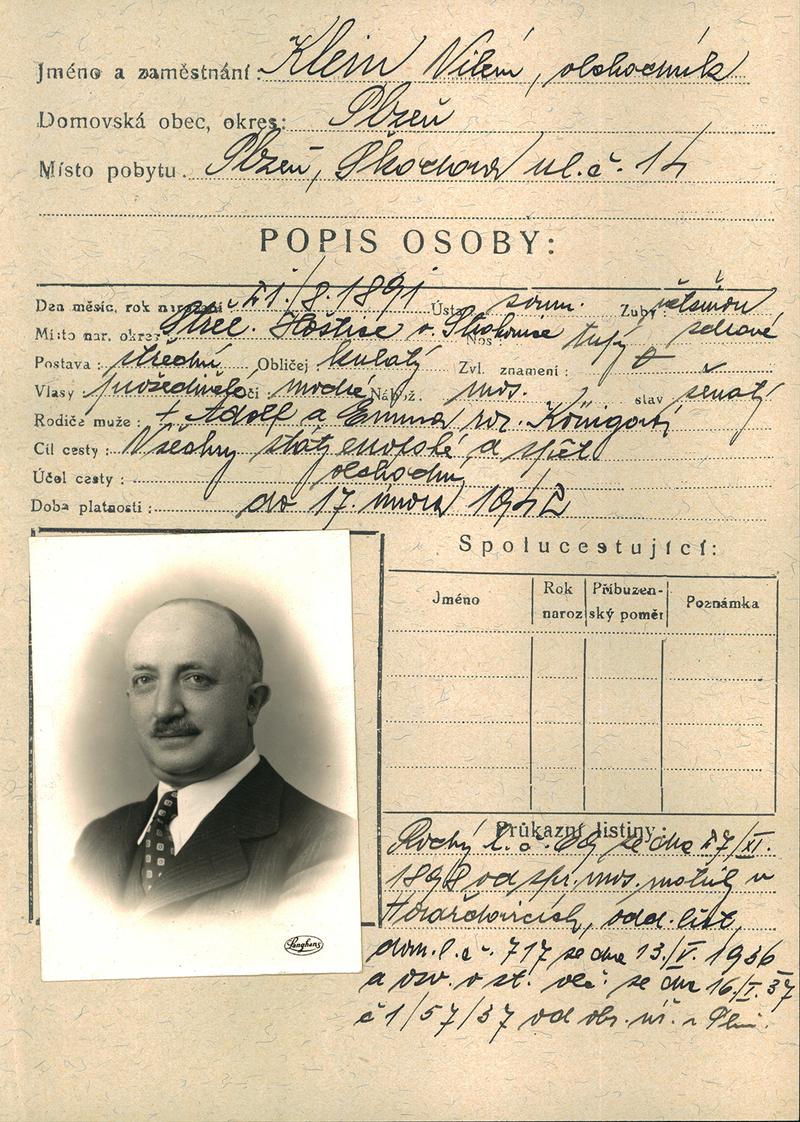 Jméno a zaměstnání: Klein Vilém, obchodník
Domovská obec, okres: Plzeň
Místo pobytu. Plzeň, Škodova ul. č. 14
POPIS OSOBY:
Den měsíc, rok narození 21./8. 1891 Ústa soum. Zuby: většinou
Místo nar. okres Střel. Hoštice o. Strakonice Nos tupý zdravé
Postava: střední Obličej kulatý Zvl. znamení:
Vlasy prošedivělé oči modré Nábož. mos. stav ženatý
Rodiče muže: † Adolf a Emma roz. Königová
Cíl cesty: Všechny státy evropské a zpět
Účel cesty: obchodní
Doba platnosti: do 17. února 1942
Spolucestující:
Jméno Rok naroz Příbuzenský poměr Poznámka
Průkazní listiny:
Rodný l. č. 69 ze dne 27/XI.
1898 od spr. mos. matrik v
Horažďovicích, odd. list,
dom. l. č. 717 ze dne 13./V. 1936
a osv. o st. obč. ze dne 16./I. 37
č 1/57/37 od okr. úř. v Plzni.
Langhans